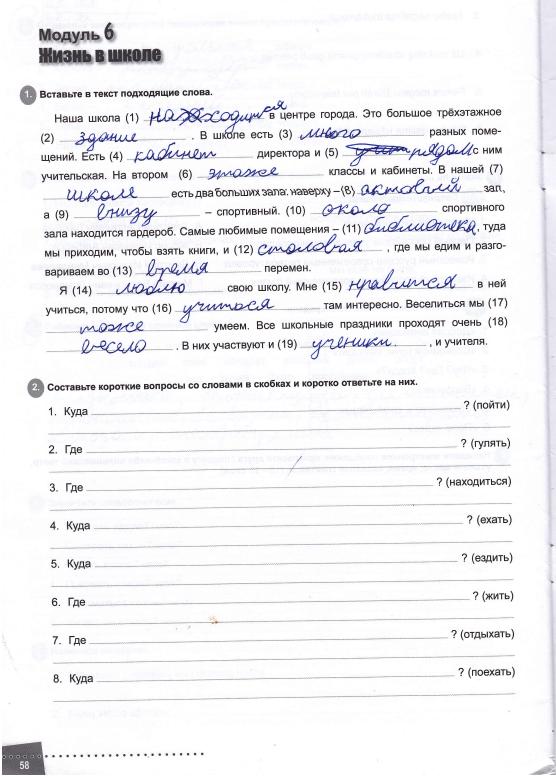 Модуль 6
Жизнь в школе
1. Вставьте в текст подходящие слова.
Наша школа (1) находится в центре города. Это большое трёхэтажное
(2) здание . В школе есть (3) много разных поме-
щений. Есть (4) кабинет директора и (5) рядом с ним
учительская. На втором (6) этаже классы и кабинеты. В нашей (7)
школе есть два больших зала: наверху – (8) актовый зал,
а (9) внизу – спортивный. (10) около спортивного
зала находится гардероб. Самые любимые помещения – (11) библиотека, туда
мы приходим, чтобы взять книги, и (12) столовая , где мы едим и разго-
вариваем во (13) время перемен.
Я (14) люблю свою школу. Мне (15) нравится в ней
учиться, потому что (16) учиться там интересно. Веселиться мы (17)
тоже умеем. Все школьные праздники проходят очень (18)
весело . В них участвуют и (19) ученики , и учителя.
2. Составьте короткие вопросы со словами в скобках и коротко ответьте на них.
1. Куда ? (пойти)
2. Где ? (гулять)
3. Где ? (находиться)
4. Куда ? (ехать)
5. Куда ? (ездить)
6. Где ? (жить)
7. Где ? (отдыхать)
8. Куда ? (поехать)
58